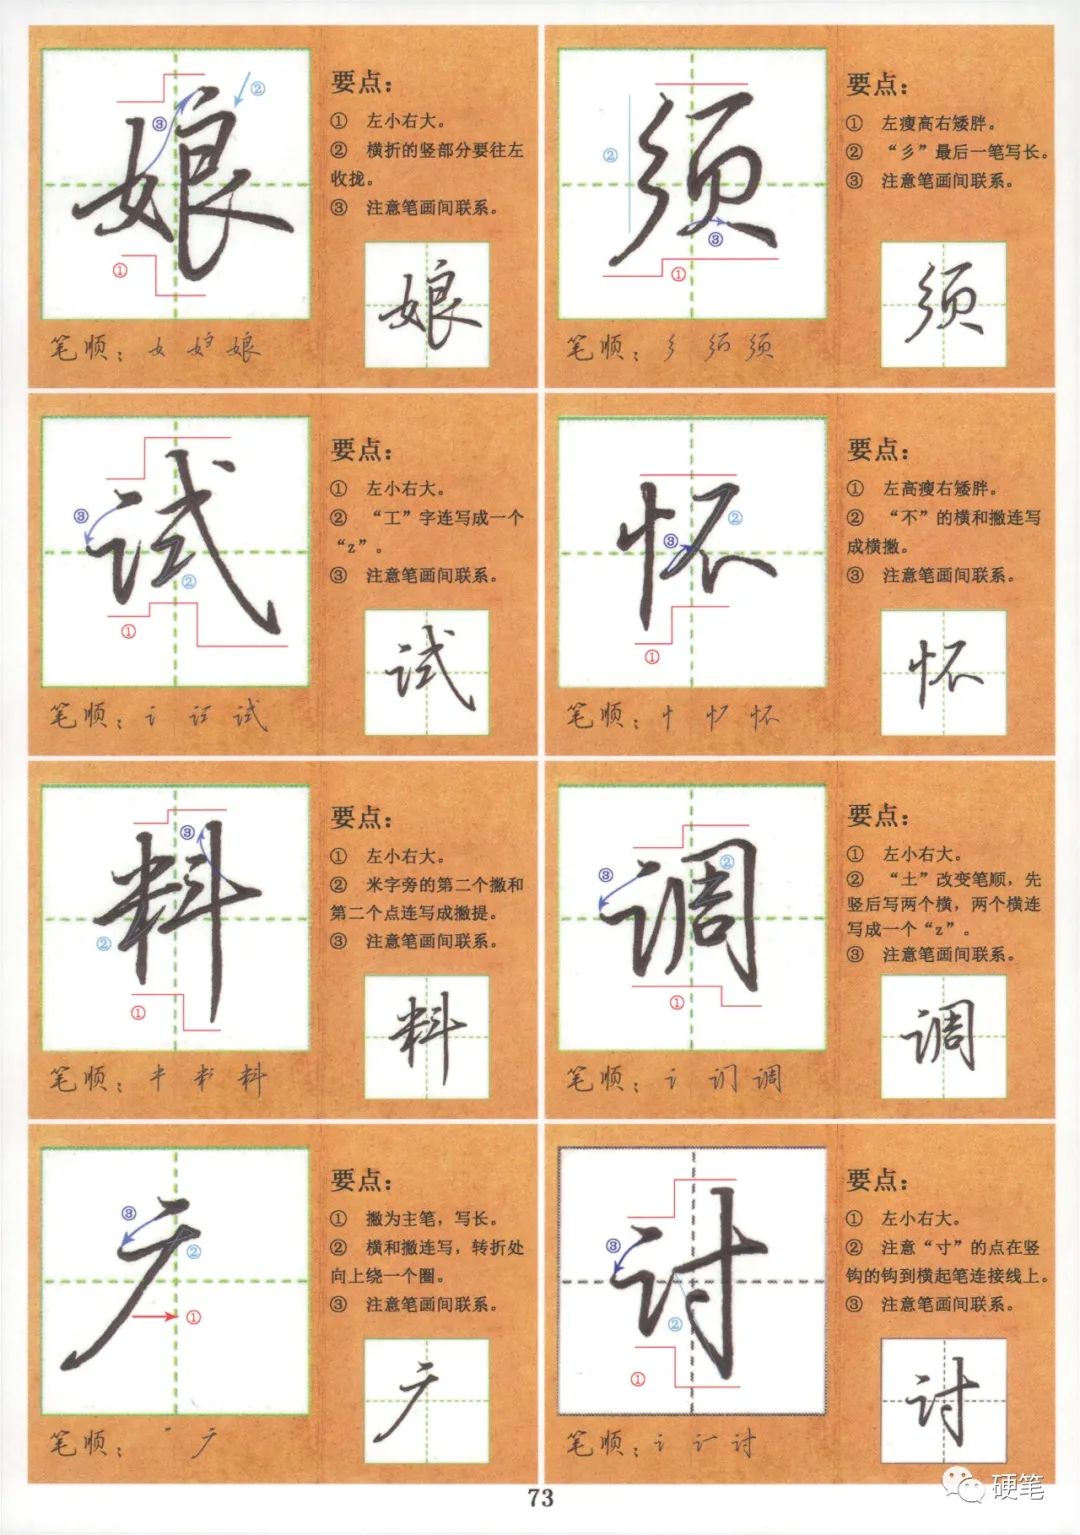 娘
要点：
① 左小右大。
② 横折的竖部分要往左
收拢。
③ 注意笔画间联系。
② ③ ①
娘
笔顺：女 娘
须
要点：
① 左瘦高右矮胖。
② “彡”最后一笔写长。
③ 注意笔画间联系。
② ③ ①
须
笔顺：彡 须
试
要点：
① 左小右大。
② “工”字连写成一个
“z”。
③ 注意笔画间联系。
③ ② ①
试
笔顺：讠 试
怀
要点：
① 左高瘦右矮胖。
② “不”的横和撇连写
成横撇。
③ 注意笔画间联系。
② ③ ①
怀
笔顺：忄 怀
料
要点：
① 左小右大。
② 米字旁的第二个撇和
第二个点连写成撇提。
③ 注意笔画间联系。
③ ② ①
料
笔顺：料
调
要点：
① 左小右大。
② “土”改变笔顺，先
竖后写两个横，两个横连
写成一个“z”。
③ 注意笔画间联系。
② ③ ①
调
笔顺：讠 调
广
要点：
① 撇为主笔，写长。
② 横和撇连写，转折处
向上绕一个圈。
③ 注意笔画间联系。
③ ② ①
广
笔顺：丶 广
讨
要点：
① 左小右大。
② 注意“寸”的点在竖
钩的钩到横起笔连接线上。
③ 注意笔画间联系。
③ ② ①
讨
笔顺：讠 讨
73
硬笔